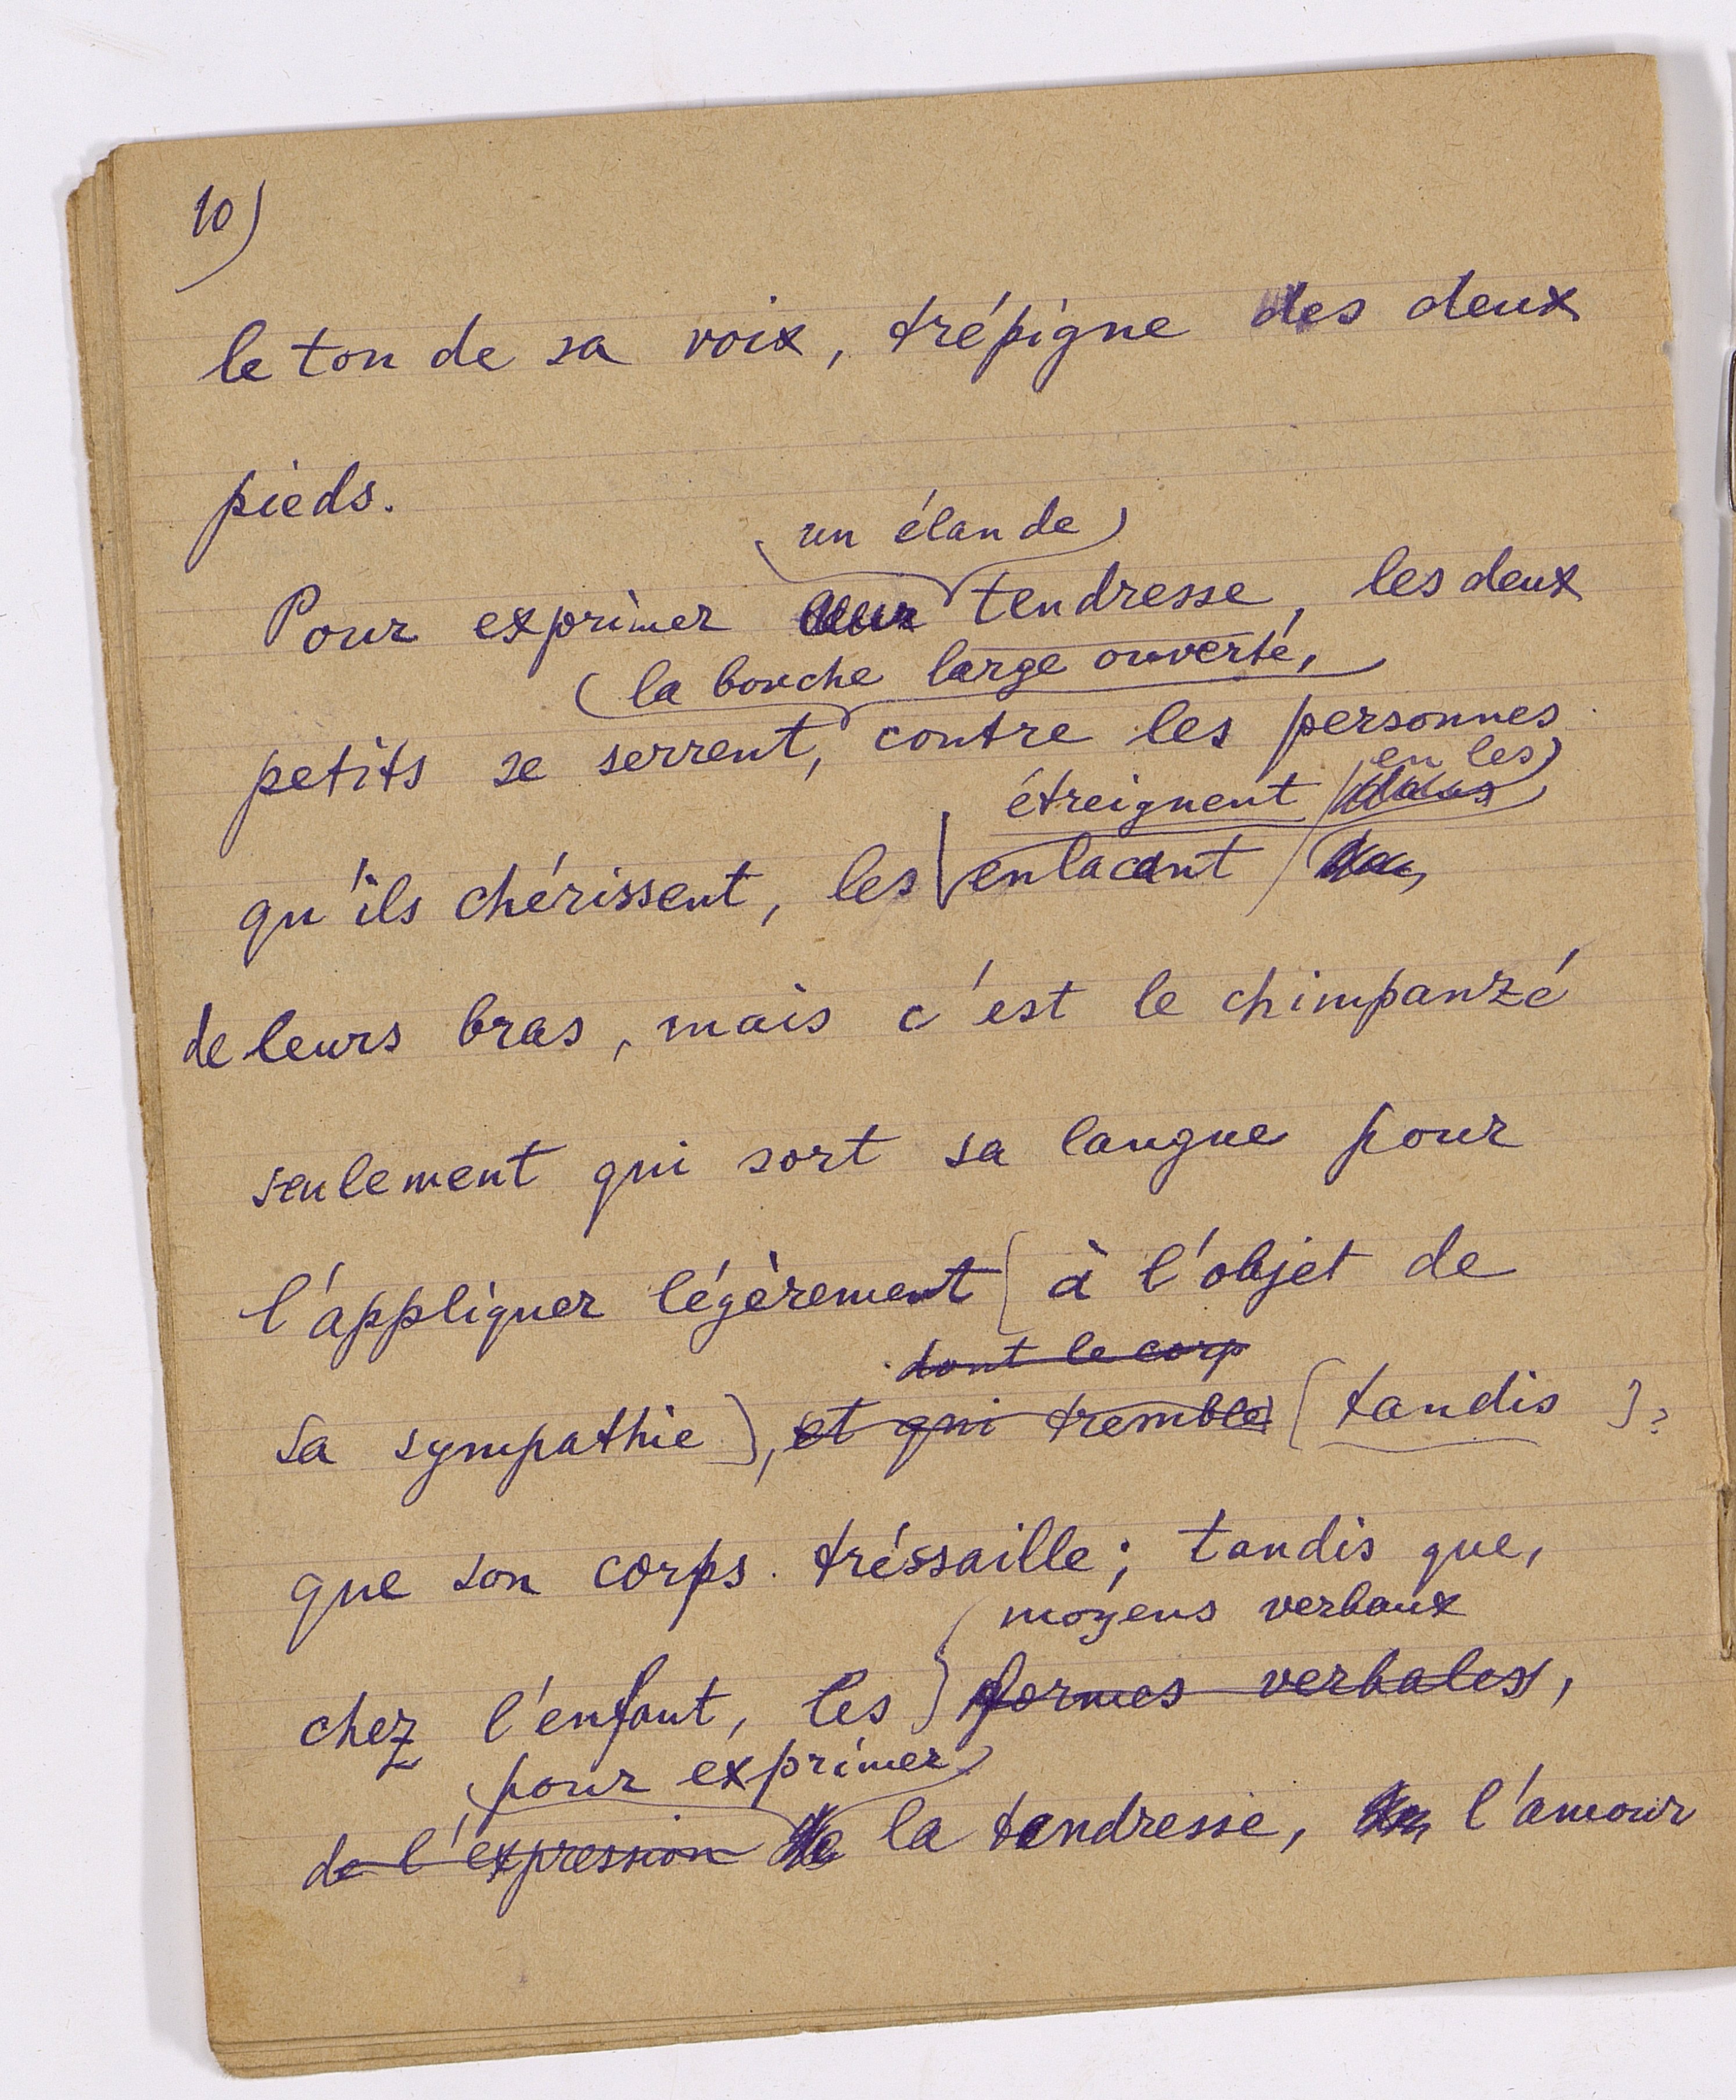 10)
le ton de sa voix, trépigne des deux
pieds.
un élan de
Pour exprimer leur tendresse, les deux
la bouche large ouverte,
petits se serrent, contre les personnes
en les
étreignent dans
qu'ils chérissent, les enlacant
de leurs bras, mais c'est le chimpanzé
seulement qui sort sa langue pour
l'appliquer légèrement [à l'objet de
dont le corp
sa sympathie], et qui tremble [tandis]?
que son corps tréssaille; tandis que,
moyens verbaux
chez l'enfant, les formes verbales,
pour exprimer
de l'expression de la tendresse, l'amour